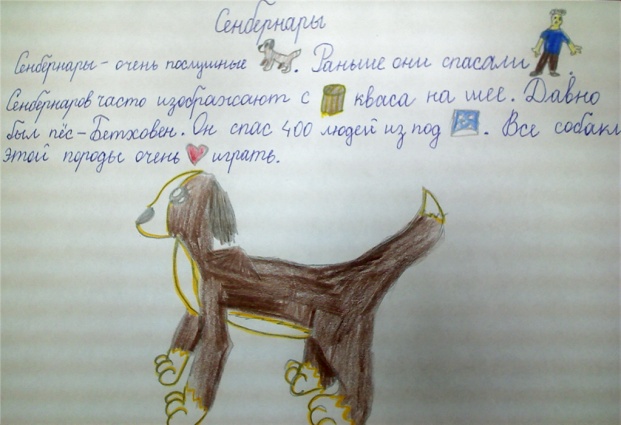 Сенбернары
Сенбернары - очень послушные . Раньше они спасали .
Сенбернаров часто изображают с кваса на шее. Давно
был пёс - Бетховен. Он спас 400 людей из под . Все собаки
этой породы очень играть.